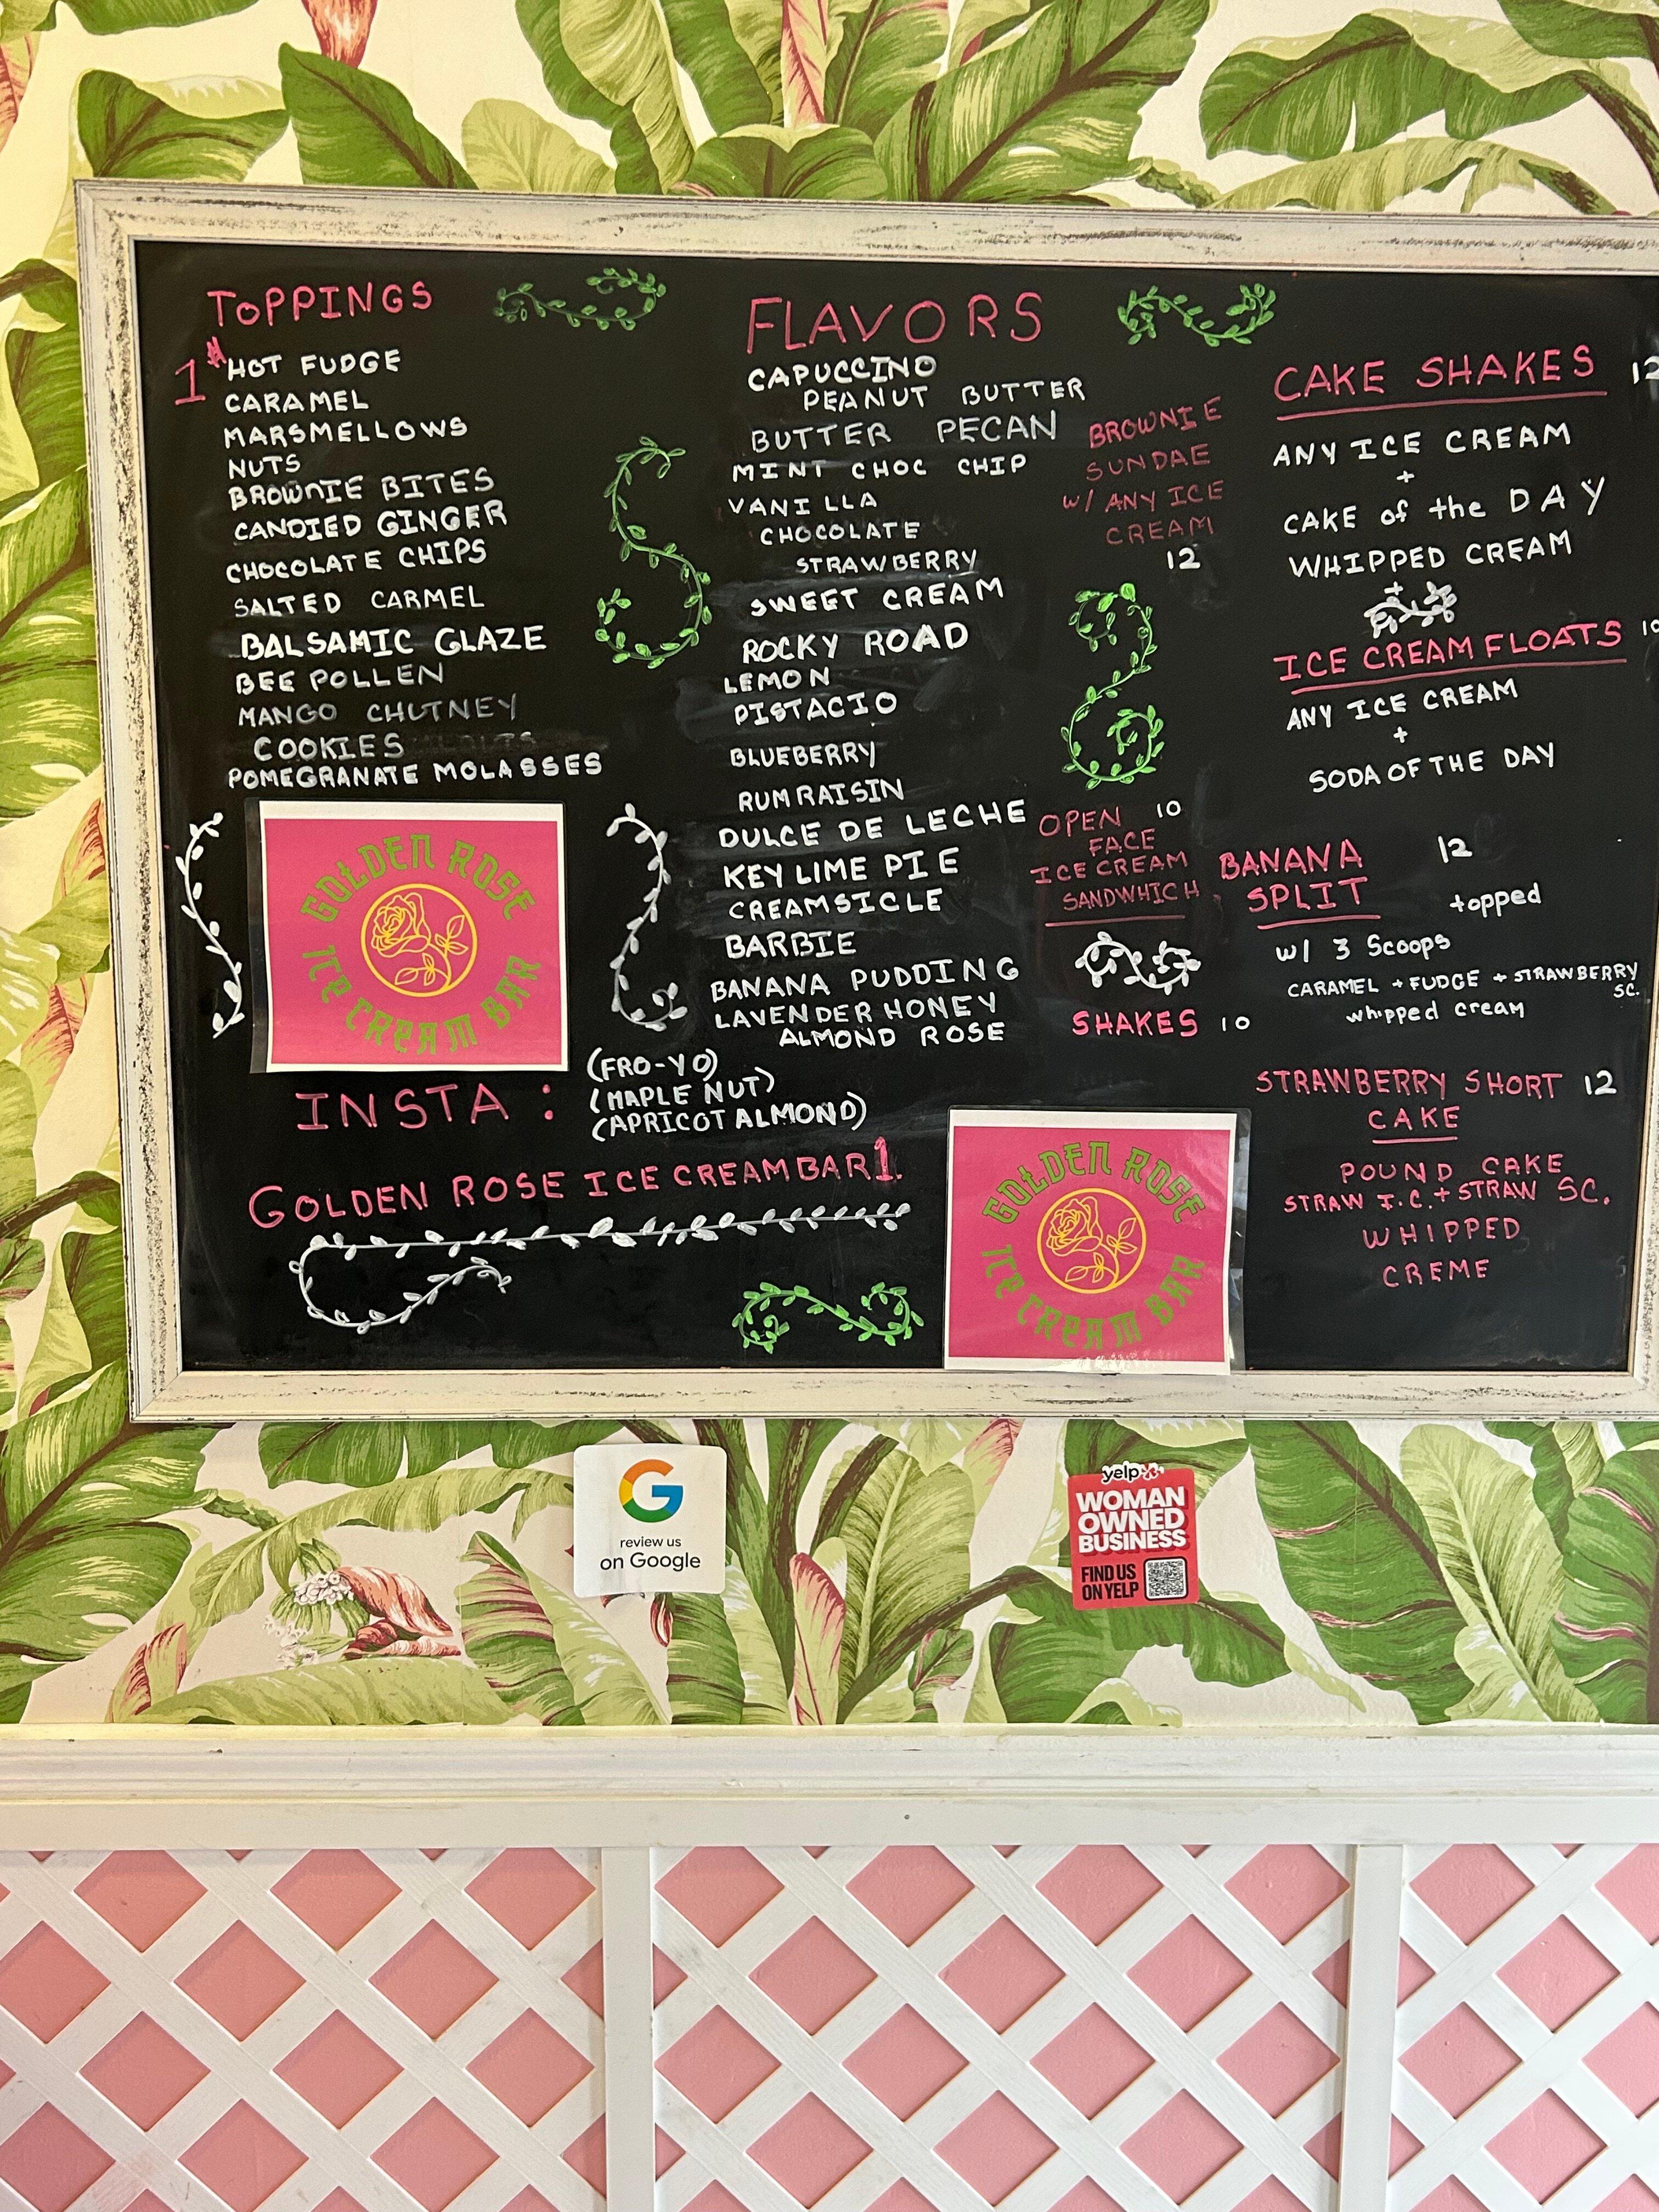 TOPPINGS
1
HOT FUDGE
CARAMEL
MARSMELLOWS
NUTS
BROWNIE BITES
CANDIED GINGER
CHOCOLATE CHIPS
SALTED CARMEL
BALSAMIC GLAZE
BEE POLLEN
MANGO CHUTNEY
COOKIES
POMEGRANATE MOLASSES
GOLDEN ROSE
ICE CREAM BAR
INSTA :
GOLDEN ROSE ICE CREAMBAR1.
FLAVORS
CAPUCCINO
PEANUT BUTTER
BUTTER PECAN
MINT CHOC CHIP
VANILLA
CHOCOLATE
STRAWBERRY
SWEET CREAM
ROCKY ROAD
LEMON
PISTACIO
BLUEBERRY
RUM RAISIN
DULCE DE LECHE
KEY LIME PIE
CREAMSICLE
BARBIE
BANANA PUDDING
LAVENDER HONEY
ALMOND ROSE
(FRO-YO)
(MAPLE NUT)
(APRICOT ALMOND)
BROWNIE
SUNDAE
W/ ANY ICE
CREAM
12
OPEN 10
FACE
ICE CREAM
SANDWHICH
SHAKES 10
GOLDEN ROSE
ICE CREAM BAR
CAKE SHAKES 12
ANY ICE CREAM
+
CAKE of the DAY
WHIPPED CREAM
+
ICE CREAM FLOATS 10
ANY ICE CREAM
+
SODA OF THE DAY
BANANA 12
SPLIT topped
w/ 3 Scoops
CARAMEL + FUDGE + STRAWBERRY
SC.
whipped cream
STRAWBERRY SHORT 12
CAKE
POUND CAKE
STRAW I.C. + STRAW SC.
WHIPPED
CREME
G
review us
on Google
yelp
WOMAN
OWNED
BUSINESS
FIND US
ON YELP